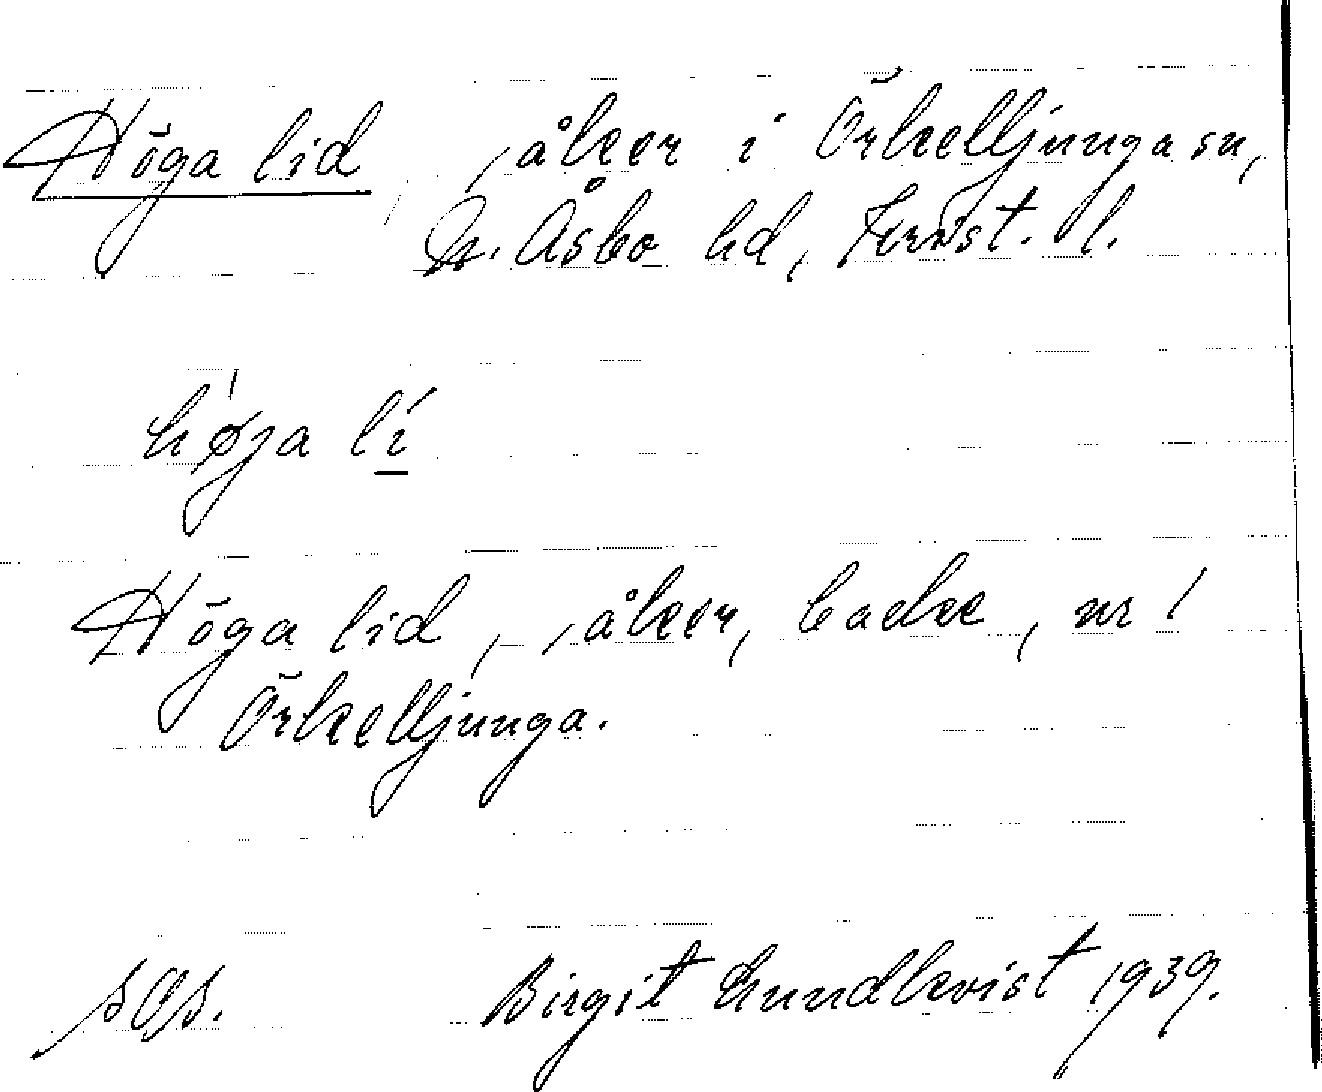 Höga lid, åker i Örkelljunga sn,
N. Åsbo hd, Krnst. l.
hø̍ja lí
Höga lid, åker, backe, nr 1
Örkelljunga.
sOs. Birgit Lundkvist 1939.